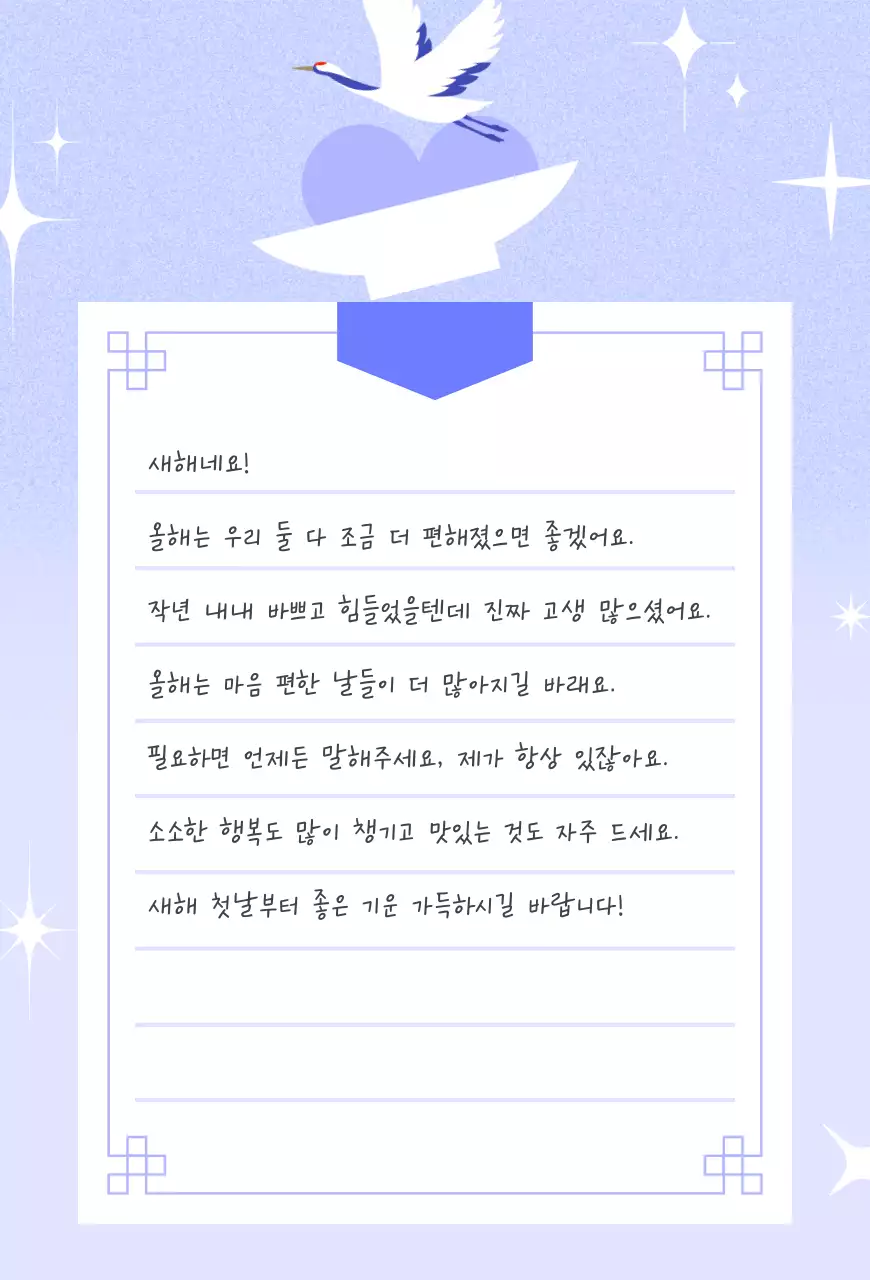 새해네요!
올해는 우리 둘 다 조금 더 편해졌으면 좋겠어요.
작년 내내 바쁘고 힘들었을텐데 진짜 고생 많으셨어요.
올해는 마음 편한 날들이 더 많아지길 바래요.
필요하면 언제든 말해주세요, 제가 항상 있잖아요.
소소한 행복도 많이 챙기고 맛있는 것도 자주 드세요.
새해 첫날부터 좋은 기운 가득하시길 바랍니다!